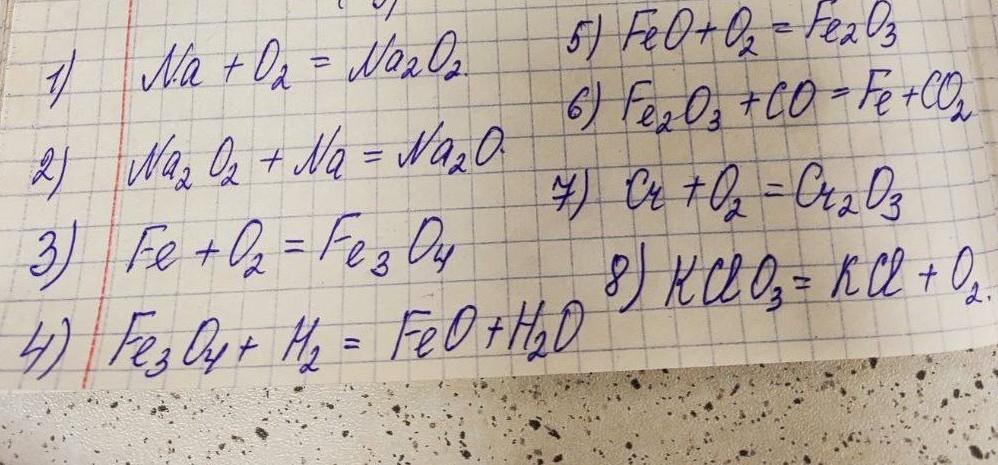 1) Na + O₂ = Na₂O₂.
2) Na₂O₂ + Na = Na₂O.
3) Fe + O₂ = Fe₃O₄
4) Fe₃O₄ + H₂ = FeO + H₂O
5) FeO + O₂ = Fe₂O₃
6) Fe₂O₃ + CO = Fe + CO₂
7) Cr + O₂ = Cr₂O₃
8) KClO₃ = KCl + O₂.